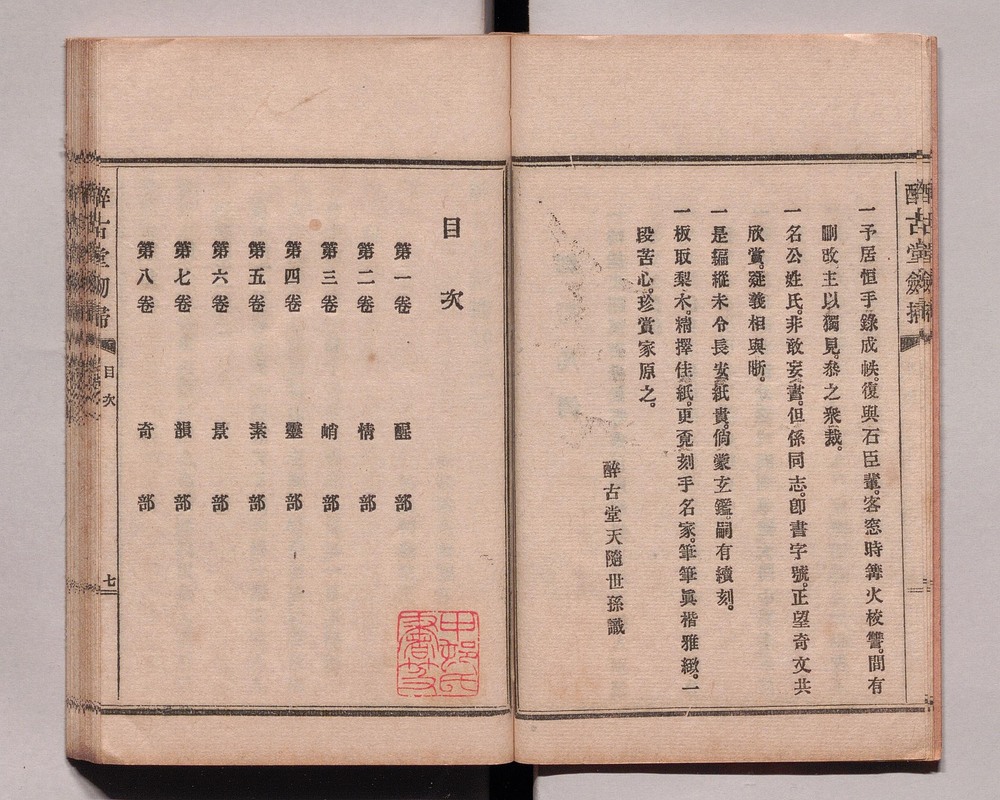 一予居恒手錄成帙。復與石臣輩。客窓時篝火校讐。間有
刪改主以獨見。叅之衆裁。
一名公姓氏。非敢妄書。但係同志。卽書字號。正望奇文共
欣賞。疑義相與晰。
一是編縱未令長安紙貴。倘蒙玄鑑。嗣有續刻。
一板取梨木。精擇佳紙。更覓刻手名家。筆筆眞楷雅緻。一
段苦心。珍賞家原之。
醉古堂天隨世孫識
醉古堂劍掃
目次
第一卷 醒部
第二卷 情部
第三卷 峭部
第四卷 靈部
第五卷 素部
第六卷 景部
第七卷 韻部
第八卷 奇部
目次
七